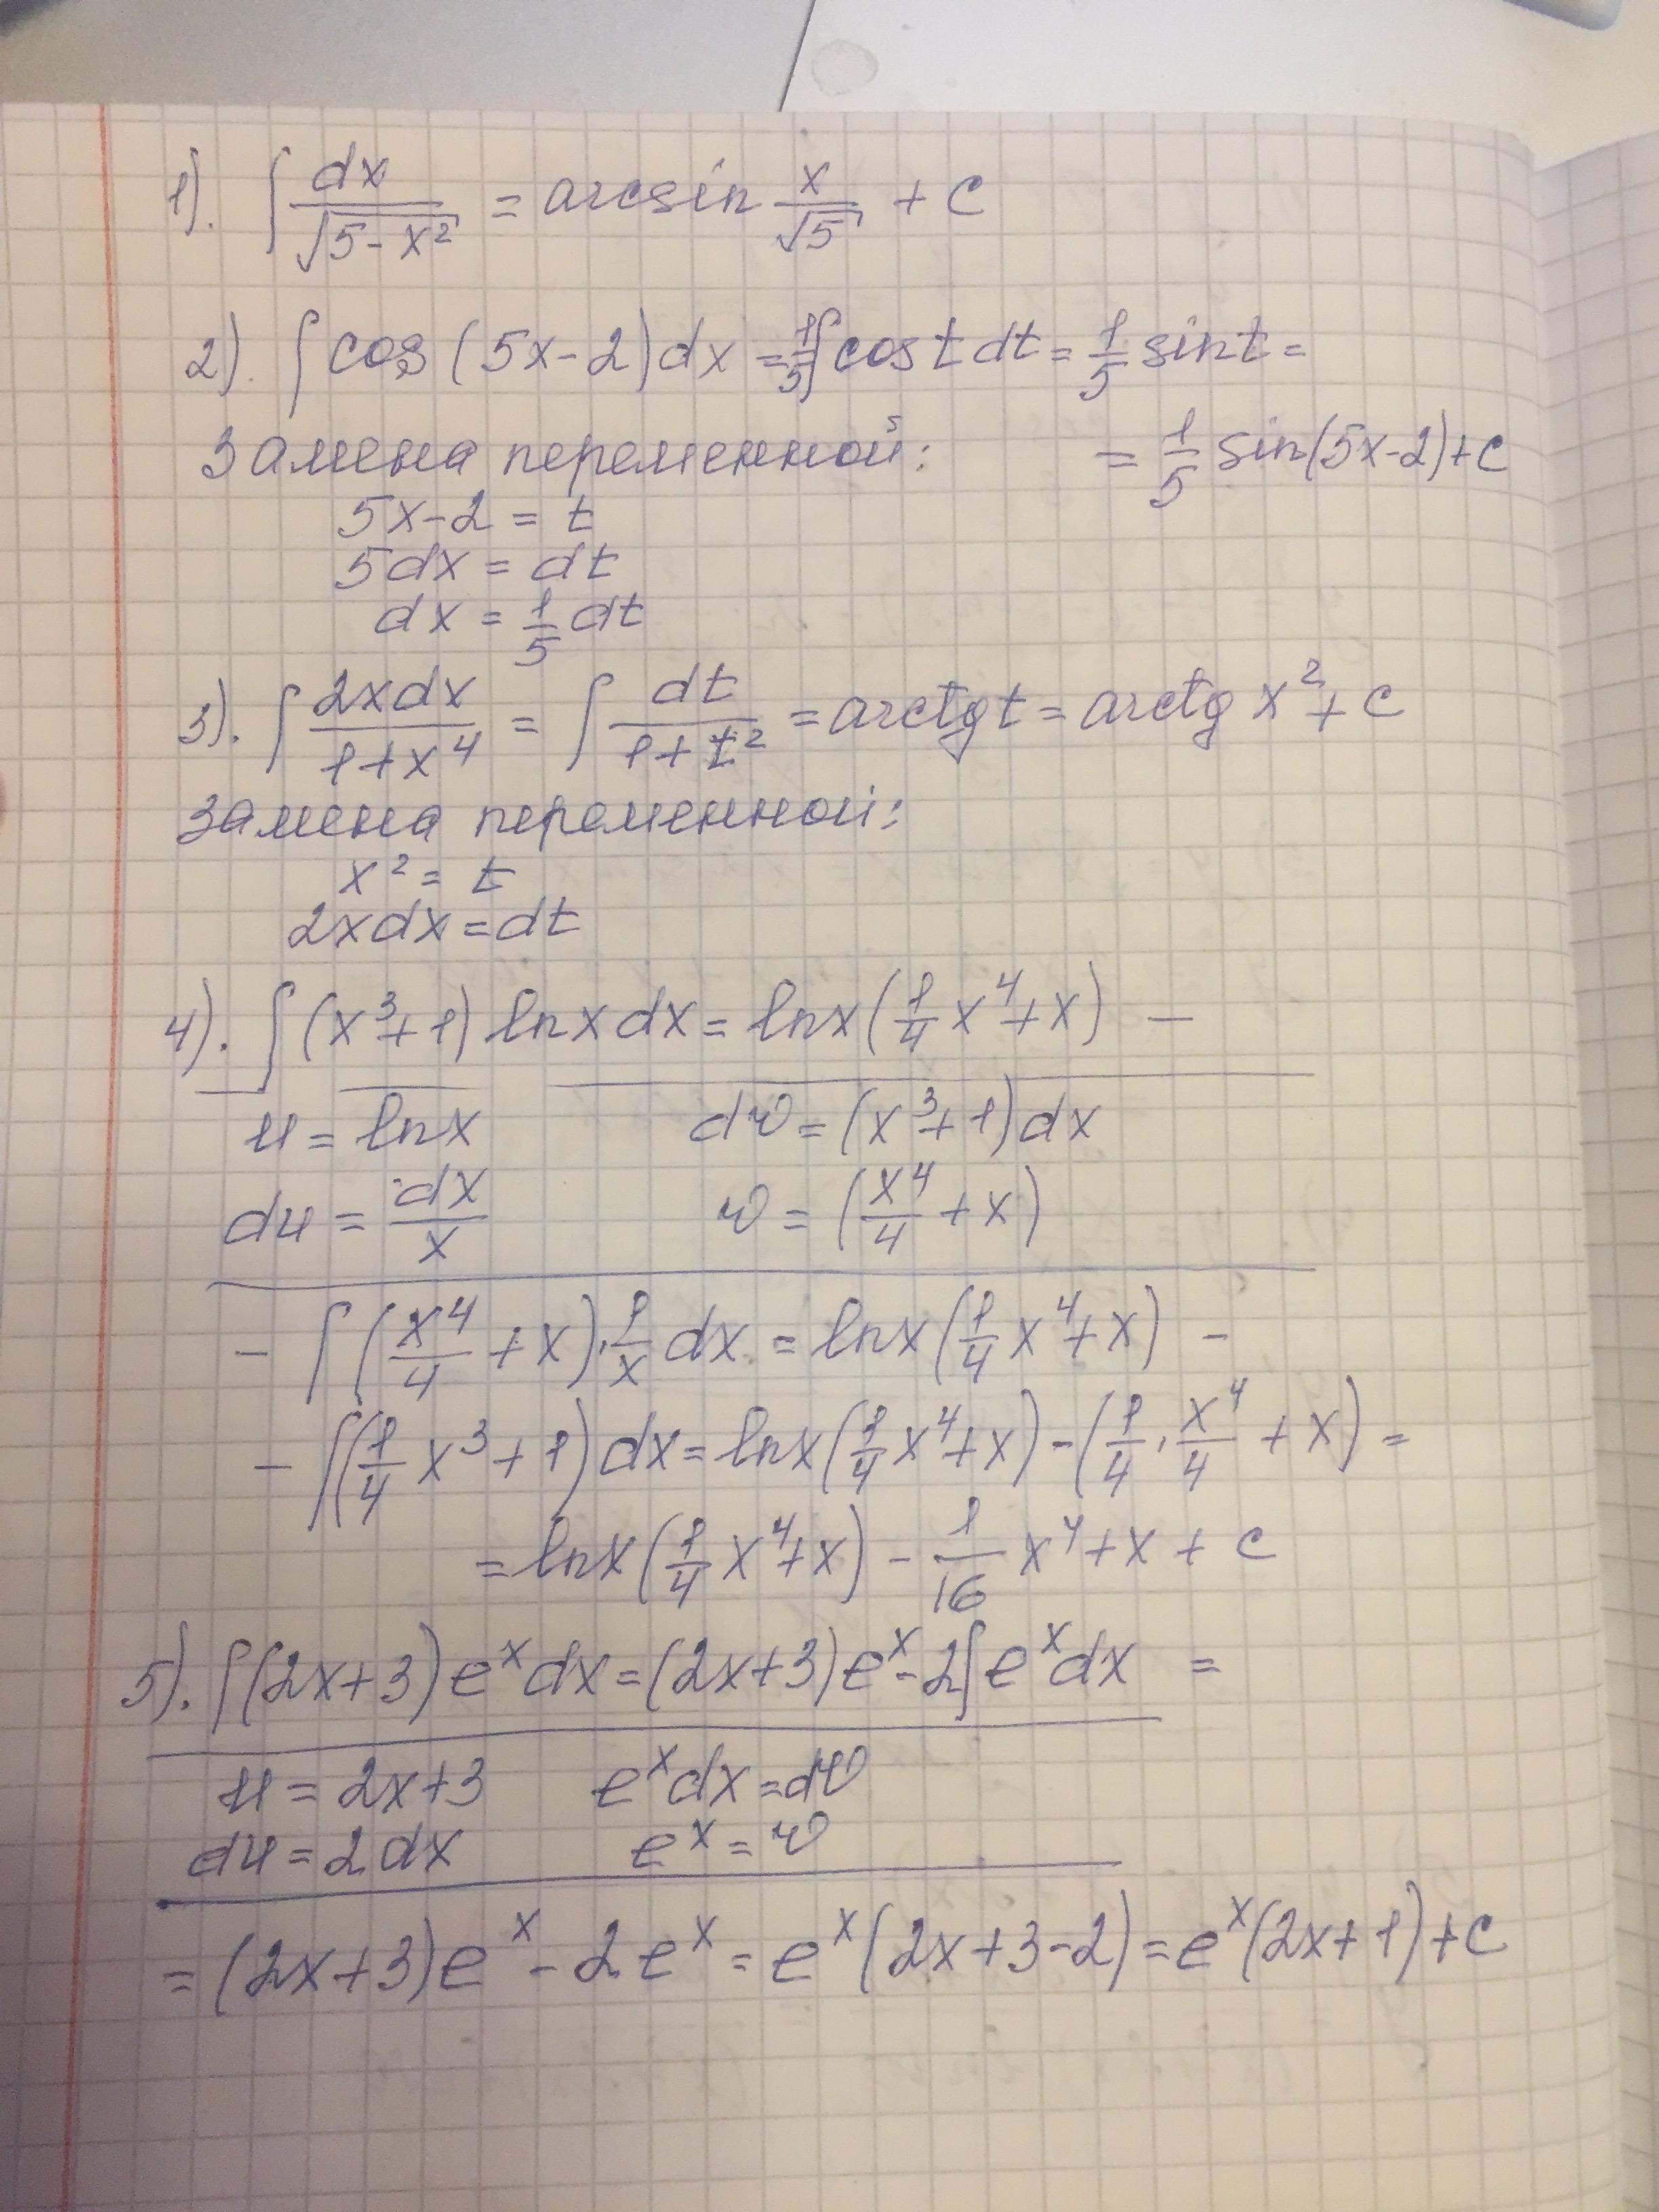 1). ∫ dx/√(5-x²) = arcsin x/√5 + c
2). ∫ cos(5x-2)dx = 1/5 ∫ cos t dt = 1/5 sin t =
Замена переменной: = 1/5 sin(5x-2)+c
5x-2 = t
5dx = dt
dx = 1/5 dt
3). ∫ 2xdx/(1+x⁴) = ∫ dt/(1+t²) = arctg t = arctg x² + c
Замена переменной:
x² = t
2xdx = dt
4). ∫(x³+1) ln x dx = ln x (1/4 x⁴+x) -
u = ln x dv = (x³+1)dx
du = dx/x v = (x⁴/4 + x)
- ∫(x⁴/4 + x)·1/x dx = ln x (1/4 x⁴+x) -
- ∫(1/4 x³+1)dx = ln x (1/4 x⁴+x) - (1/4 · x⁴/4 + x) =
= ln x (1/4 x⁴+x) - 1/16 x⁴ + x + c
5). ∫(2x+3)eˣdx = (2x+3)eˣ - 2∫eˣdx =
u = 2x+3 eˣdx = dv
du = 2dx eˣ = v
= (2x+3)eˣ - 2eˣ = eˣ(2x+3-2) = eˣ(2x+1)+c